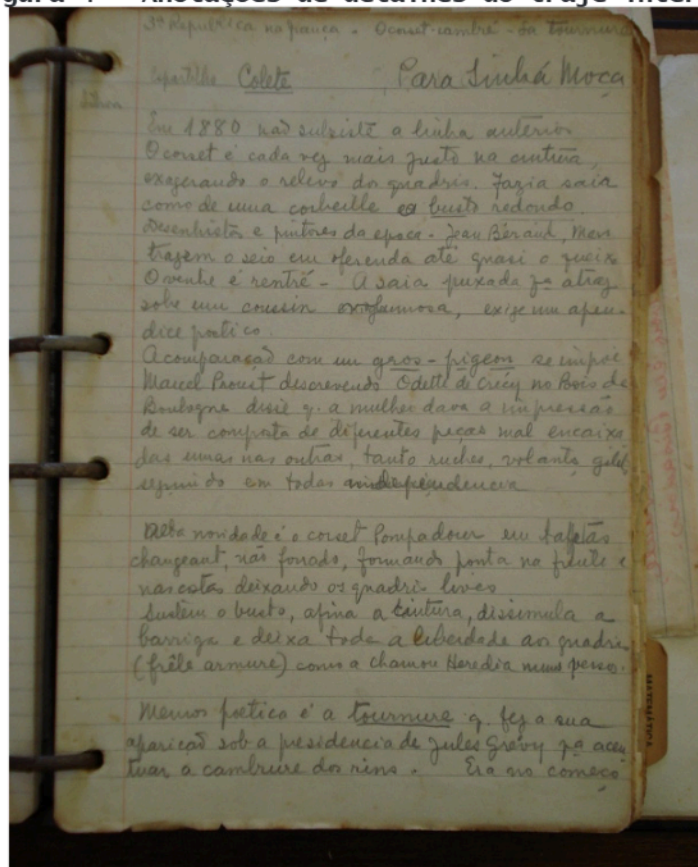 gura 4 - Anotações de detalhes do traje inter
3ª Republica na frança - O corset-cambré - La tournure
Espartilho Colete Para Sinhá Moça
Em 1880 não subsiste a linha anterior
O corset é cada vez mais justo na cintura,
exagerando o relevo dos quadris. Fazia saia
como de uma corbeille o busto redondo.
Desenhistas e pintores da epoca - Jean Béraud, Mars
trazem o seio em oferenda até quasi o queix
O ventre é rentré - A saia puxada pª atraz
sobe um coussin, exige um apen-
dice poetico.
A comparação com um gros-pigeon se impõe
Marcel Proust descrevendo Odette de Crécy no Bois de
Boulogne disse q. a mulher dava a impressão
de ser composta de diferentes peças mal encaixa
das umas nas outras, tanto ruches, volants, gilet
seguindo em todas independencia
Bela novidade é o corset Pompadour em tafetás
changeant, não forrado, formando ponta na frente e
nas costas deixando os quadris livres
Sustem o busto, afina a cintura, dissimula a
barriga e deixa toda a liberdade aos quadris
(frêle armure) como a chamou Heredia num verso.
Menos poetica é a tournure q. fez a sua
aparição sob a presidencia de Jules Grévy pª acen
tuar a cambrure dos rins. Era no começo
MATEMÁTICA